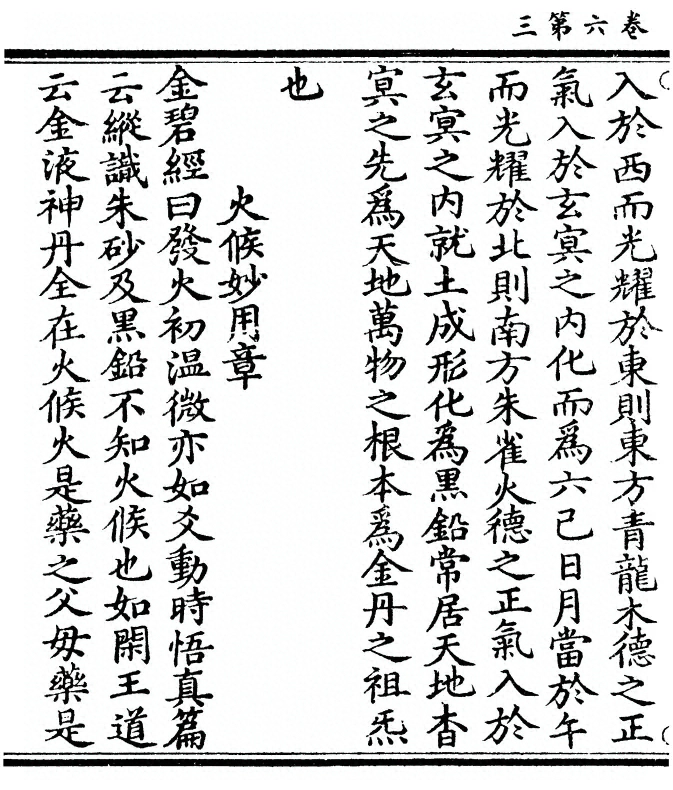 卷六第三
入於西而光耀於東則東方青龍木德之正
氣入於玄冥之內化而為六己日月當於午
而光耀於北則南方朱雀火德之正氣入於
玄冥之內就土成形化為黑鉛常居天地杳
冥之先為天地萬物之根本為金丹之祖炁
也
火候妙用章
金碧經曰發火初温微亦如爻動時悟真篇
云縱識朱砂及黑鉛不知火候也如閑王道
云金液神丹全在火候火是藥之父母藥是